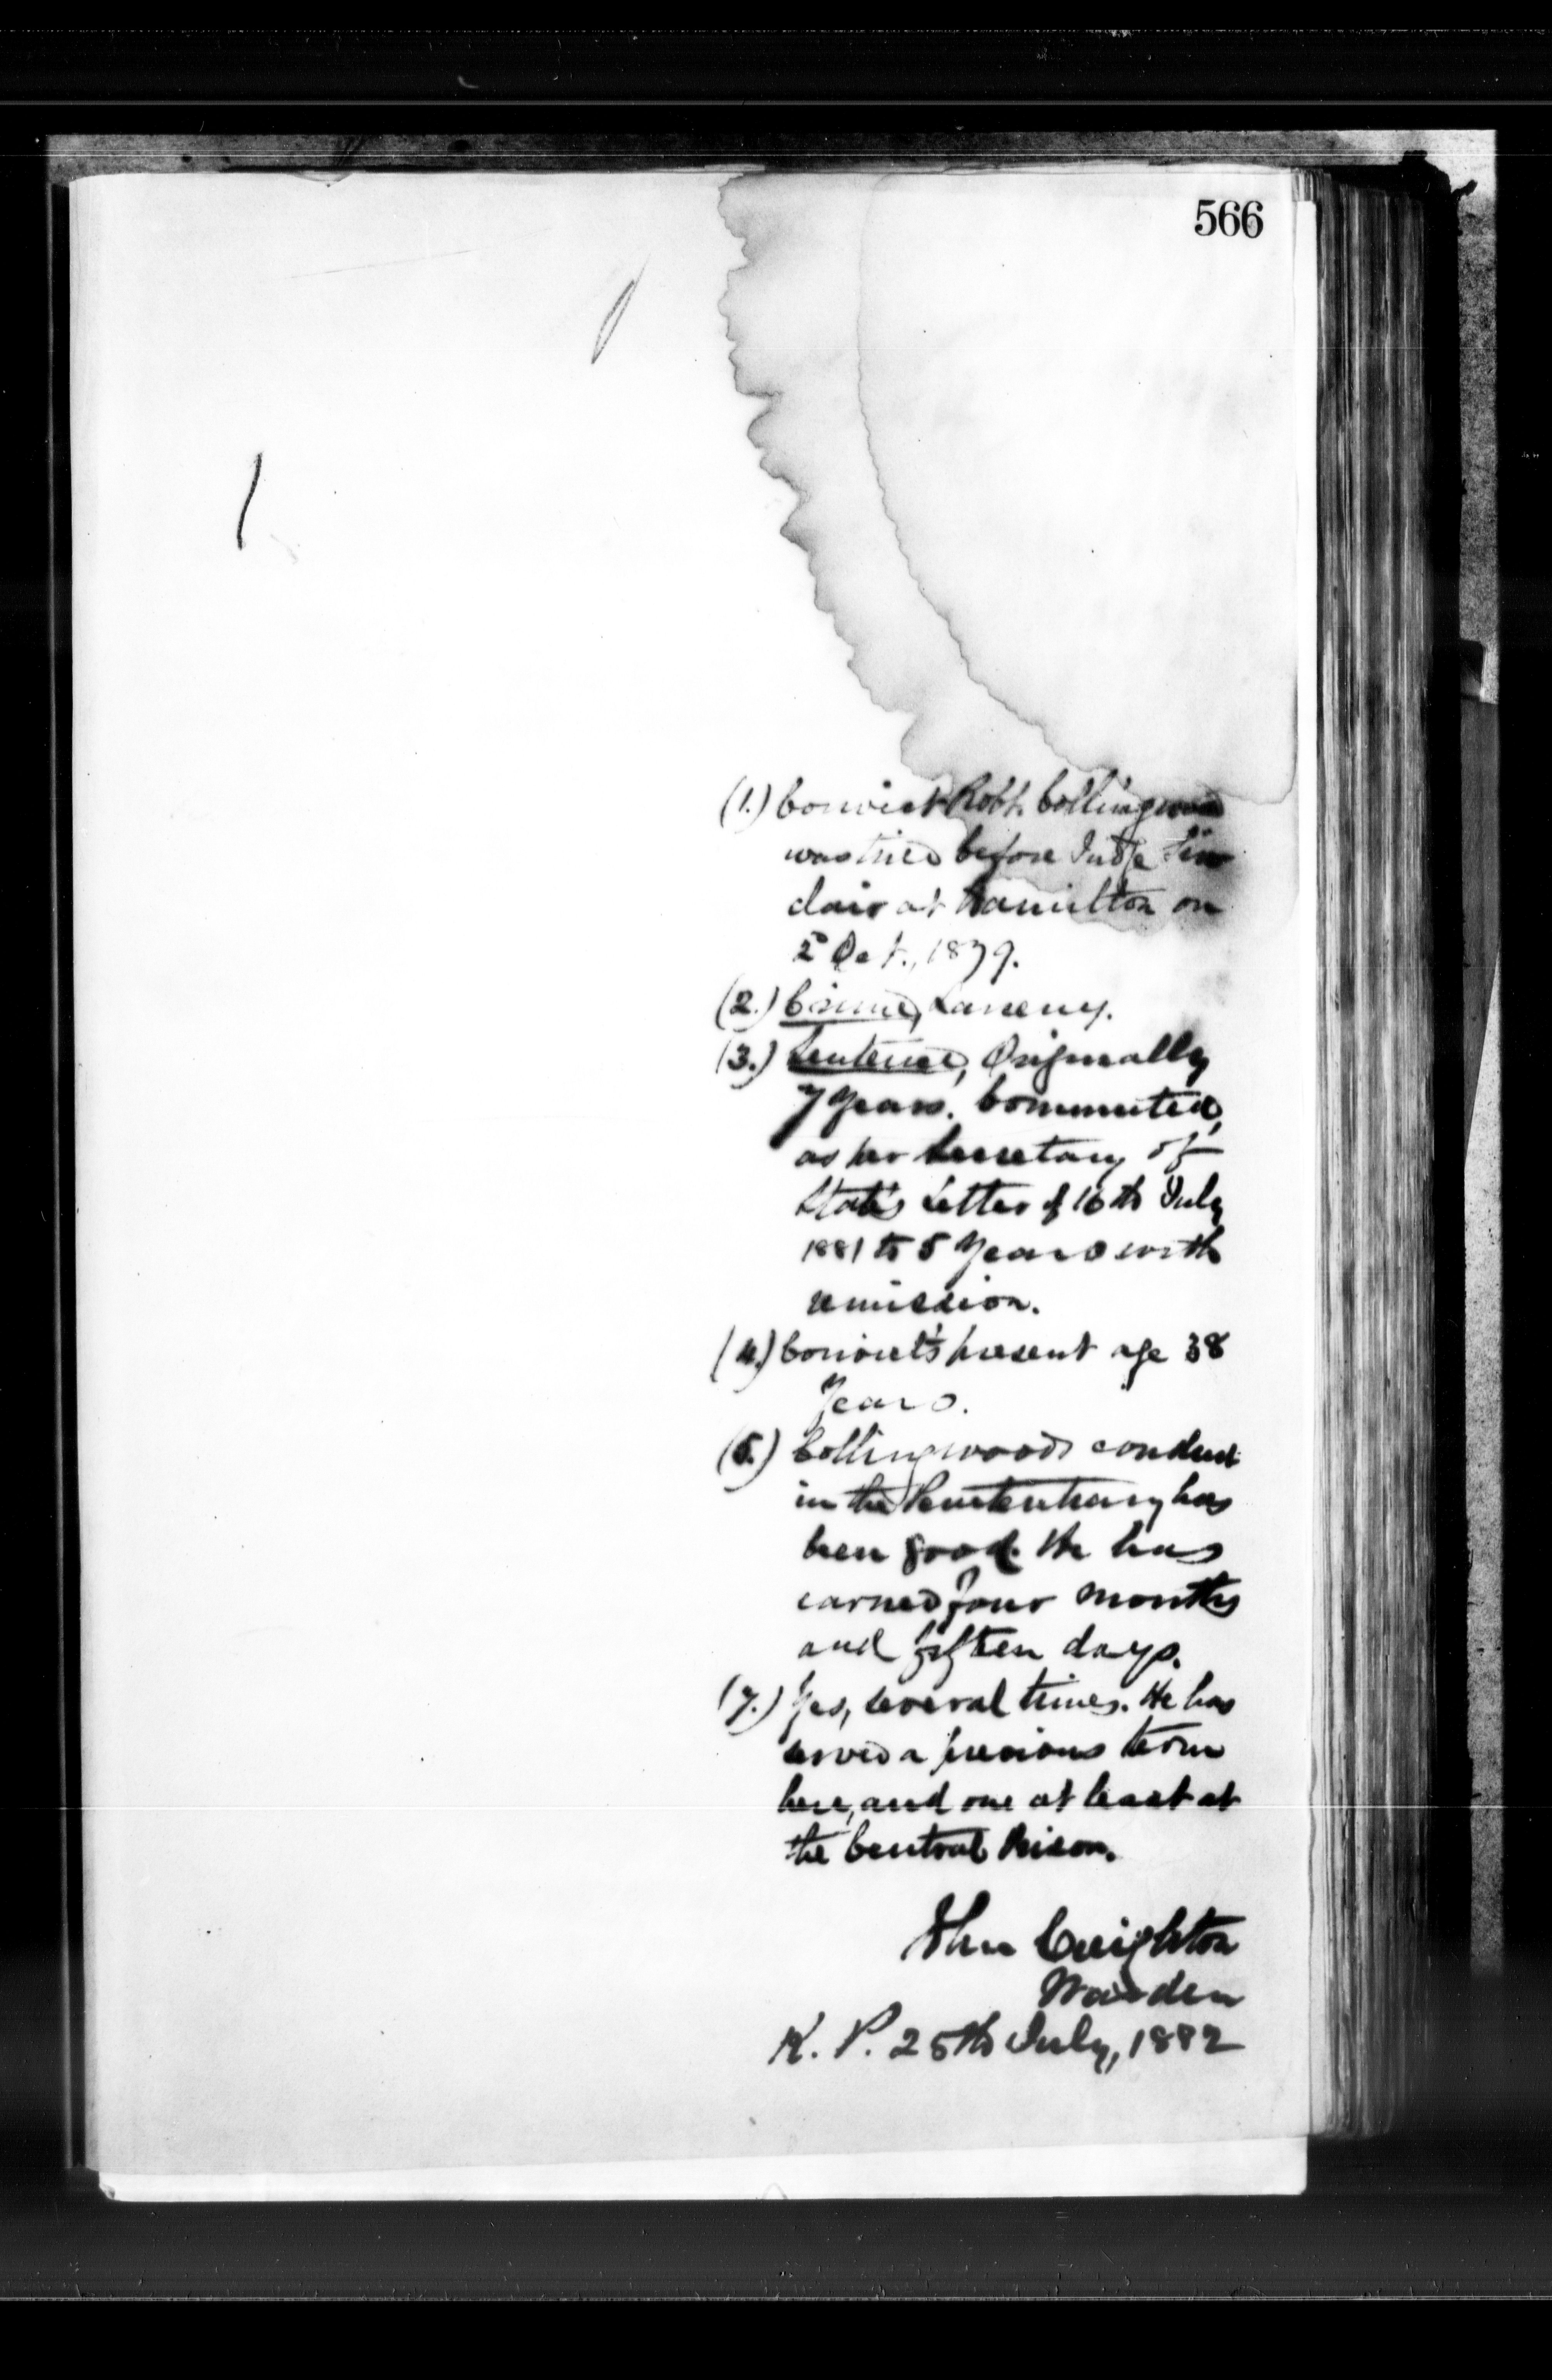 566
(1.) Convict Robt. Collingwood
was tried before Judge Sin
clair at Hamilton on
2d Oct., 1879.
(2.) Crime, Larceny.
(3.) Sentence, Originally
7 years. Commuted,
as per Secretary of
State's letter of 16th July
1881 to 5 years with
remission.
(4.) Convict's present age 38
years.
(5.) Collingwood's conduct
in the Penitentiary has
been good. He has
earned four months
and fifteen days.
(7.) Yes, several times. He has
served a previous term
here, and one at least at
the Central Prison.
John Creighton
Warden
K. P. 25th July, 1882